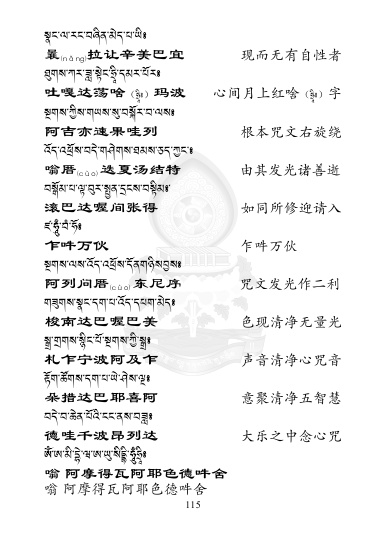 སྣང་ལ་རང་བཞིན་མེད་པ་ཡི༔
曩(nǎng)拉让辛美巴宜 现而无有自性者
ཐུགས་ཀར་ཟླ་སྟེང་ཧྲཱིཿདམར་པོར༔
吐嘎达荡啥（ཧྲཱིཿ）玛波 心间月上红啥（ཧྲཱིཿ）字
སྔགས་ཀྱིས་གཡས་སུ་བསྐོར་བ་ལས༔
阿吉亦速果哇列 根本咒文右旋绕
འོད་འཕྲོས་བདེ་གཤེགས་ཐམས་ཅད་ཀྱང་༔
嗡厝(cuò)选夏汤结特 由其发光诸善逝
བསྒོམ་པ་ལྟ་བུར་སྤྱན་དྲངས་བསྟིམ༔
滚巴达喔间张得 如同所修迎请入
ཛཿཧཱུྃ་བཾ་ཧོཿ
乍吽万伙 乍吽万伙
སྔགས་ལས་འོད་འཕྲོས་དོན་གཉིས་བྱས༔
阿列问厝(cuò)东尼序 咒文发光作二利
གཟུགས་སྣང་དག་པ་འོད་དཔག་མེད༔
梭南达巴喔巴美 色现清净无量光
སྒྲ་གྲགས་སྙིང་པོ་སྔགས་ཀྱི་སྒྲ༔
札乍宁波阿及乍 声音清净心咒音
རྟོག་ཚོགས་དག་པ་ཡེ་ཤེས་ལྔ༔
朵措达巴耶喜阿 意聚清净五智慧
བདེ་བ་ཆེན་པོའི་ངང་ནས་བཟླ༔
德哇千波昂列达 大乐之中念心咒
ཨོཾ་ཨ་མི་དྷེ་ཝ་ཨ་ཡུ་སིདྡྷི་ཧཱུྃ་ཧྲཱིཿ
嗡 阿摩得瓦阿耶色德吽舍
嗡 阿摩得瓦阿耶色德吽舍
115